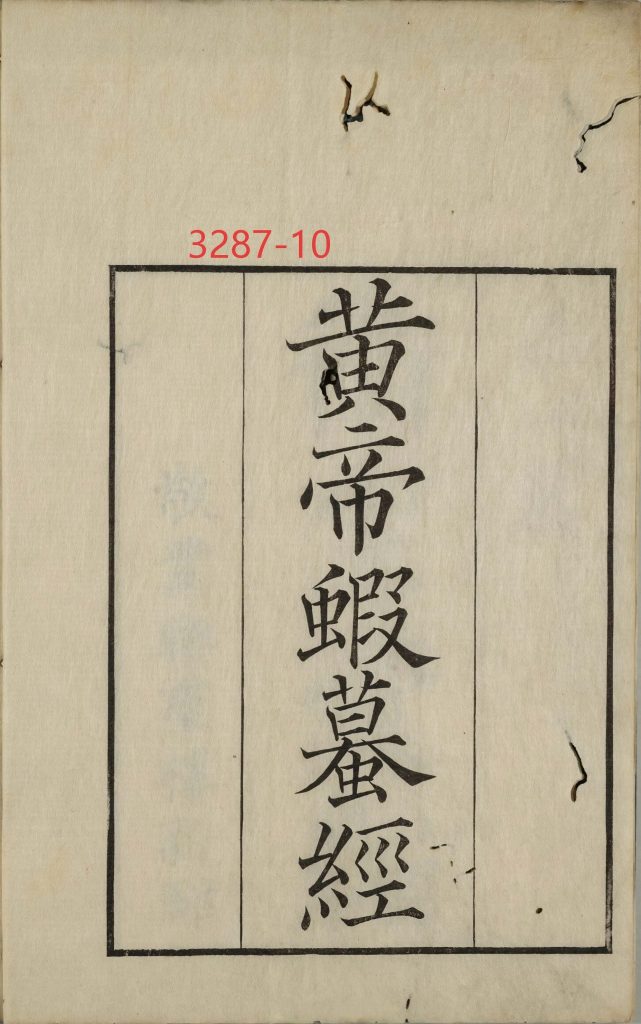 3287-10
黄帝蝦蟇經